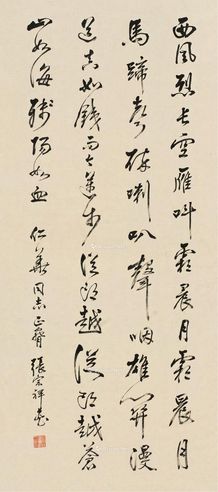 西風烈長空雁叫霜晨月霜晨月
馬蹄聲碎喇叭聲咽雄關漫
道真如鐵而今邁步從頭越從頭越蒼
山如海殘陽如血 仁 同志正 張宗祥書